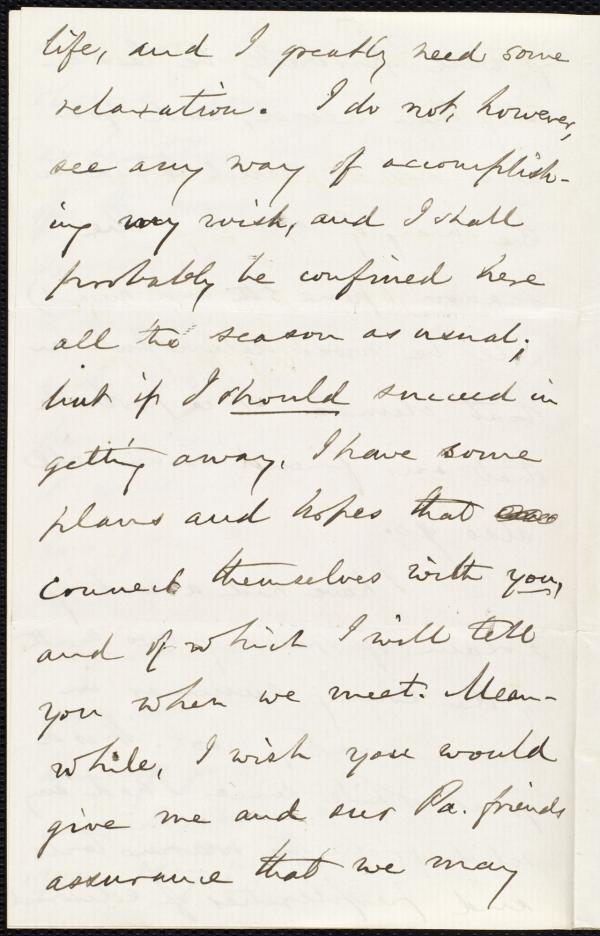 life, and I greatly need some
relaxation. I do not, however,
see any way of accomplish-
ing my wish, and I shall
probably be confined here
all the season as usual;
but if I should succeed in
getting away, I have some
plans and hopes that
connect themselves with you,
and of which I will tell
you when we meet. Mean-
while, I wish you would
give me and our Pa. friends
assurance that we may